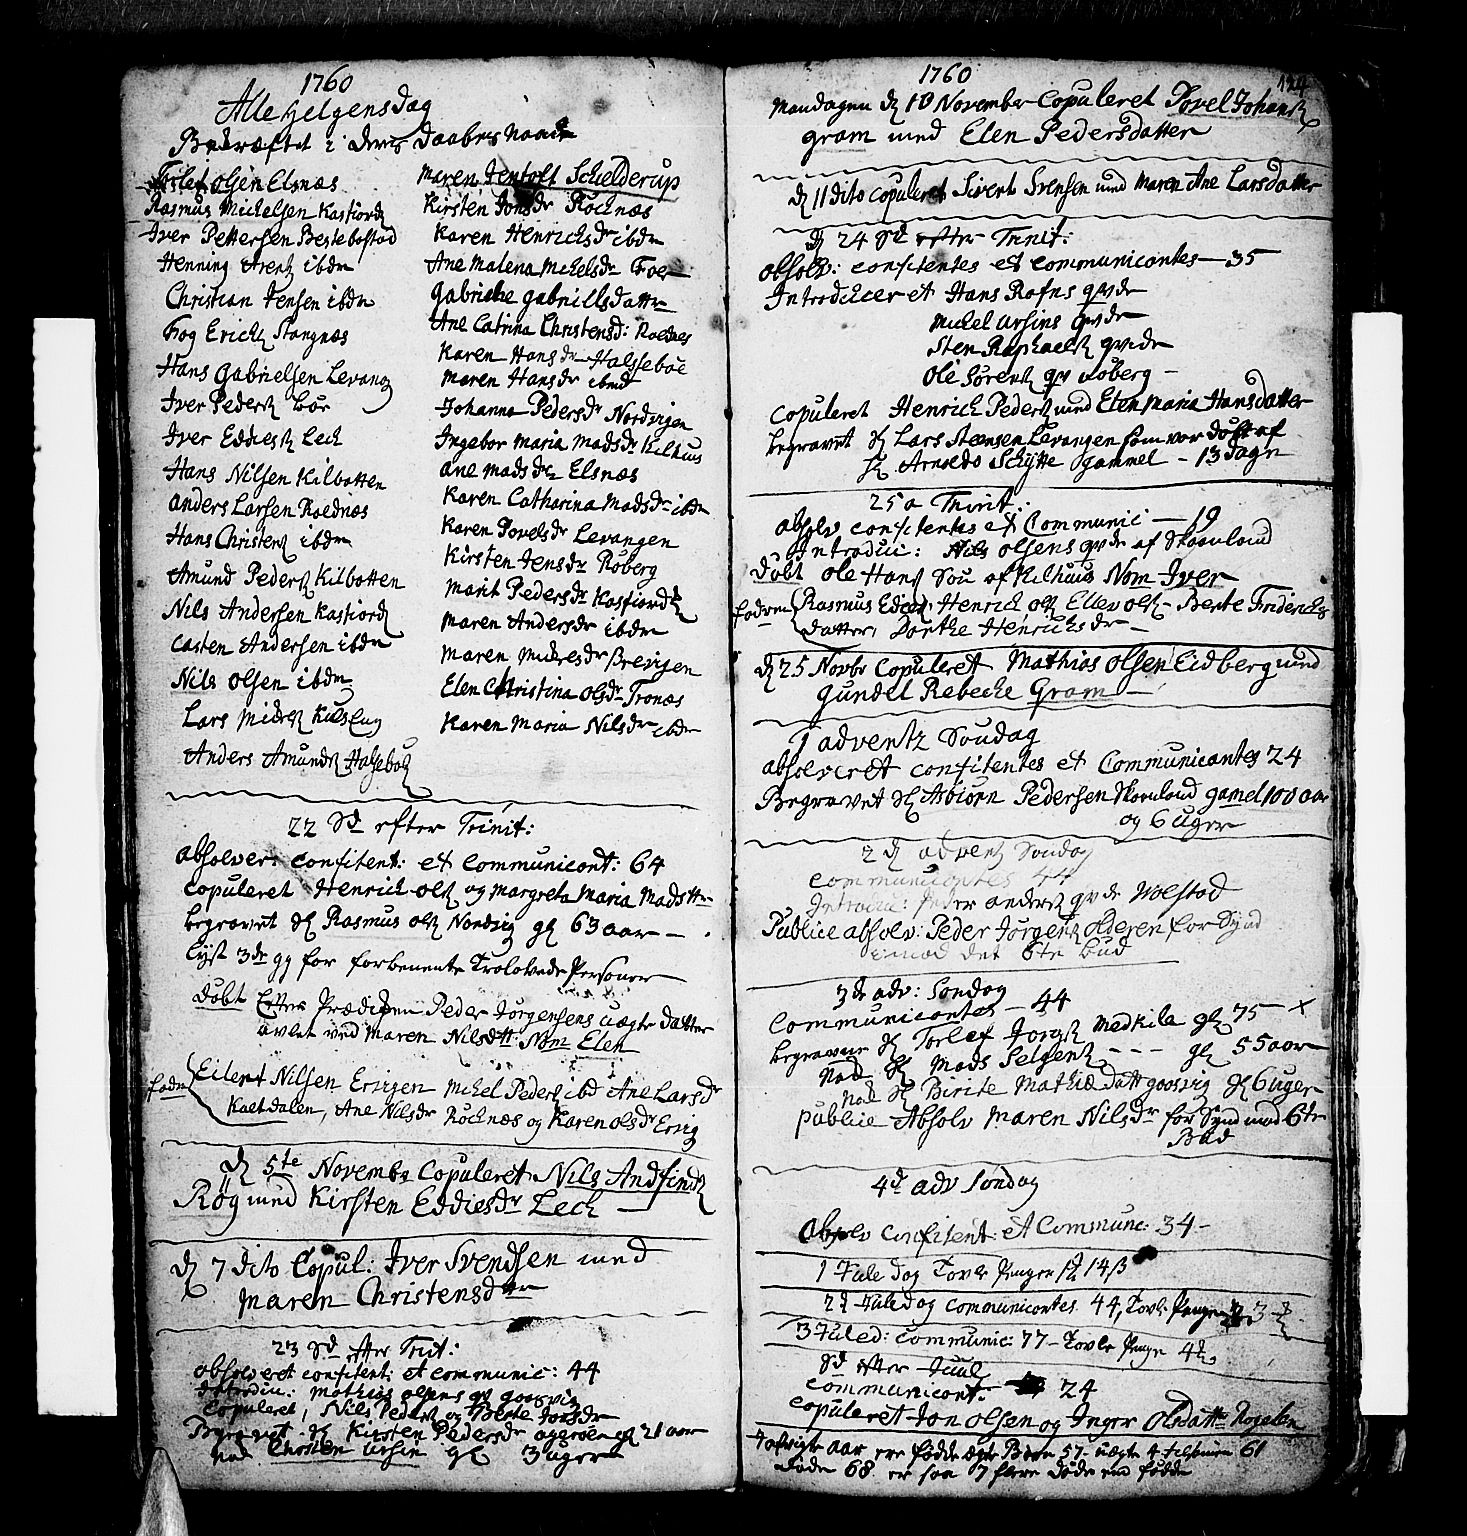 1760
Alle Helgens Dag
Bekræftet i deres Daabes Naade
Olsen Elsnæs
Rasmus Michelsen Kasfiord
Iver Pettersen Bestebostad
Henning Arentz ibdm
Christian Jensen ibdm
Erichs Stangnæs
Hans Gabrielsen Levang
Iver Peders Boe
Iver Eddies Lech
Hans Nilsen Kilbotten
Anders Larsen Roednæs
Hans Christens ibdm
Amund Peders Kilbotten
Nils Andersen Kasfiord
Casten Andersen ibdm
Nils Olsen ibdm
Lars
Anders Amunds Halseboe
Maren Jentoft Schielderup
Kirsten Jonsdr Rochnæs
Karen Henrichsdr ibdm
Ane Malena Michelsdr
Gabriele Gabrillsdatter
Ane Catrina Christensd: Roednes
Karen Hansdr Halssebøe
Maren Hansdr ibmd
Johanna Pedersdr Nordvigen
Ingebor Maria Madsdr Kilhuus
Ane Madsdr Elsnæs
Karen Catharina Madsdr ibdm
Karen Povelsdr Levangen
Kirsten Jensdr Røberg
Marit Pedersdr Kasfiord
Maren Andersdr ibdm
Maren Brevigen
Elen Christina Olsdr Tronæs
Karen Maria Nilsdr ibdm
22 Sd efter Trinit:
absolver: confitent: et communicant: 64
copuleret Henrich Ols og Margreta Maria Mads
begravet Rasmus Ols Nordvig gl 63 aar
lyst 3de gg for forbenente Trolovede Personer
døbt Efter Prædiken Peder Jørgensens uægte datter
avlet ved Maren Nilsdtt: Nom Elen
fadr Eilert Nilsen Ervigen Michel Peders ibd Ane Larsdr
Kaltdalen, Ane Nilsdr Rochnæs og Karen Olsdr Ervig
5te Novembr Copuleret Nils Andfinds
Røg med Kirsten Eddiesdr Lech
7 dito Copul: Iver Svendsen med
Maren Christensdtr
23 Sd efter Trit:
absolveret confitent: et communic: 44
Introdu: Mathias Olsens qv
Copuleret, Nils Peders og Berte Jonsdr
Begravet Kirsten Pedersdr gl 21 aar
gl 3 uger
1760
124
Mandagen 10 November Copuleret Povel Johans
Gram med Elen Pedersdatter
11 dito copuleret Sivert Svensen med Maren Ane Larsdatter
24 Sd efter Trinit:
absolv: confitentes et communicantes 35
Introduceret Hans Rafns qvde
Michel Ursins qvde
Sten Raphaels qvde
Ole Sørens qv Røberg
Copuleret Henrich Peders med Elen Maria Hansdatter
begravet Lars Steensen Levangen som var døbt af
Arnoldo Schytte gammel 13 dage
25 a Trinit:
absolv confitentes et Communic 19
Introduc: Nils Olsens qvde af Skoenland
Døbt Ole Hans Søn af Kilhuus Nom Iver
fadrene Rasmus Henrich Ols Ellev Ols Berte Fridrichs
datter, Dorthe Henrichsdr
25 Novbr Copuleret Mathias Olsen Eidberg med
Gundel Rebecke Gram
1 adventz Søndag
absolveret confitentes et Communicantes 24
Begravet Asbiørn Pedersen Skoenland gamel 100 aar
og 6 uger
2 advent Søndag
communicantes 44
Introduc: Peder Anders qvde Wolstad
Publice absolv: Peder Jørgens Olderen for Synd
imod det 6te Bud
3de adv: Søndag
Communicantes 44
begraven Torlef Jørgs Medkila gl 75 x
Nod Mads Selgens gl 55 aar
Nod Birite Mathiæ datt gaasvig gl 6 uger
publice Absolv Maren Nilsdr for Synd mod 6te
Bud
4d adv Søndag
Absolv confitent: et Commune: 34
1 Juledag Tavle Penger 14 ß
2d Juledag communicantes 44, Tavle Penge
3 Juled: communic: 77 Tavle Penge
Sd efter Juul
communicant: 24
copuleret Jon Olsen og Inger Olsdatter
aar ere fødde ægte Børn 57 uægte 4 tilsamen 61
døde 68 er saa 7 flere døde end fødde